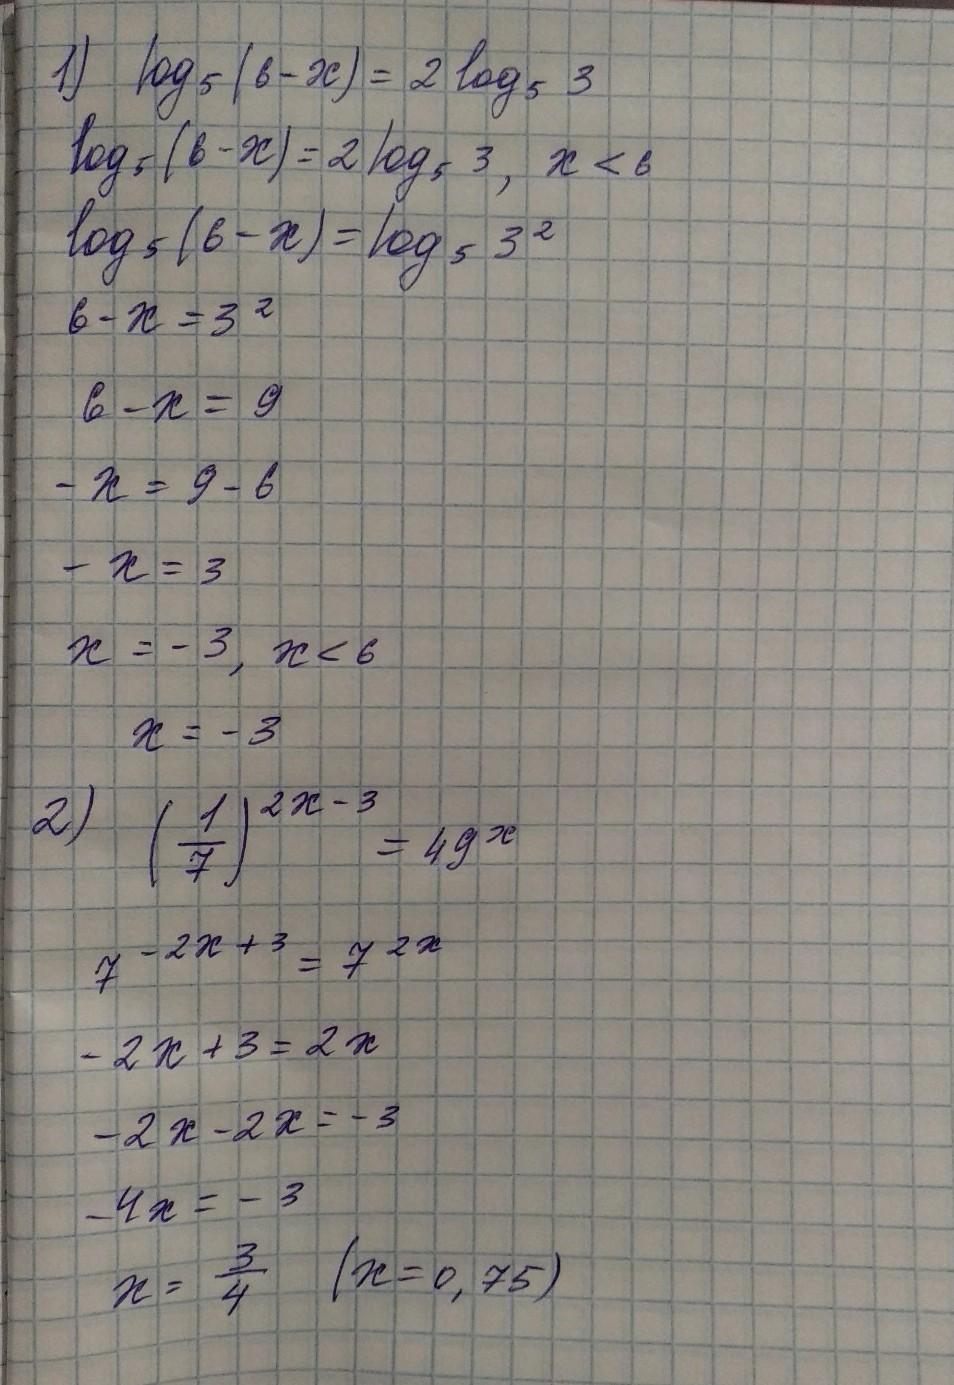 1) log₅(6-x)=2log₅3
log₅(6-x)=2log₅3, x<6
log₅(6-x)=log₅3²
6-x=3²
6-x=9
-x=9-6
-x=3
x=-3, x<6
x=-3
2) (1/7)^(2x-3)=49^x
7^(-2x+3)=7^(2x)
-2x+3=2x
-2x-2x=-3
-4x=-3
x=3/4 (x=0,75)